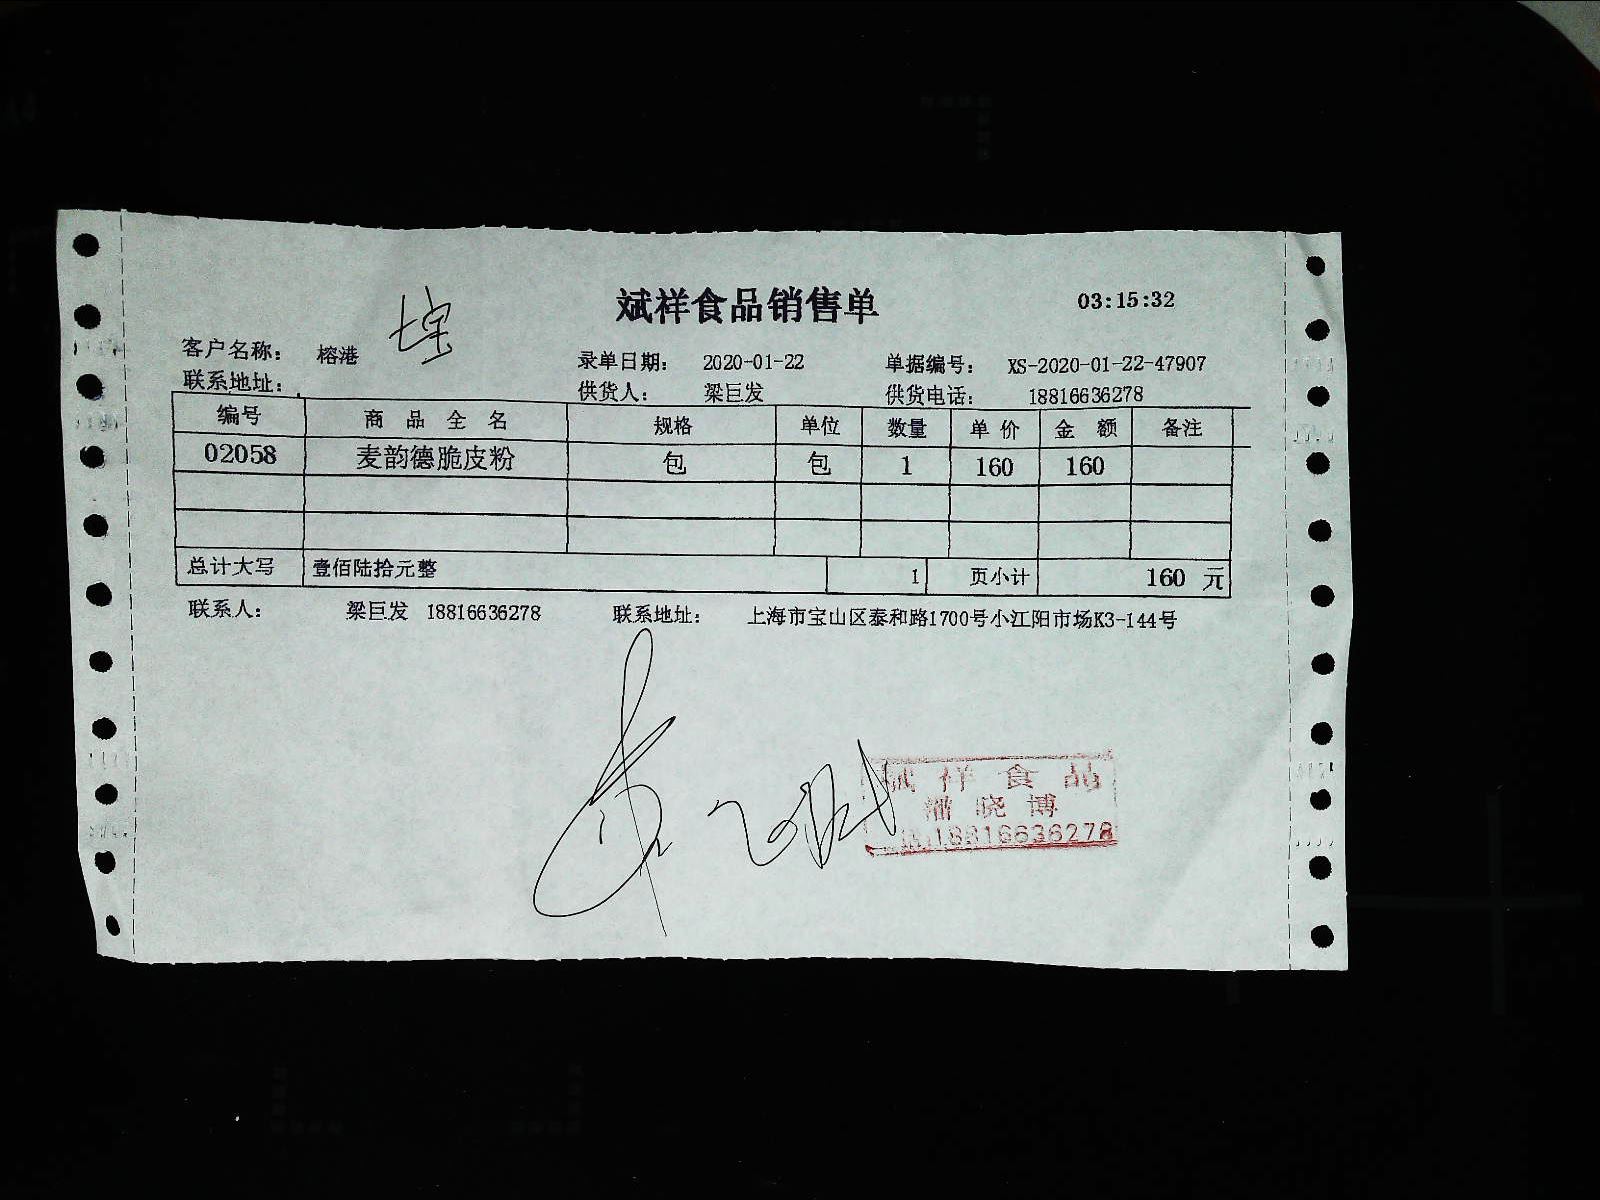 斌祥食品销售单 03:15:32
客户名称： 榕港 七宝 录单日期： 2020-01-22 单据编号： XS-2020-01-22-47907
联系地址： 供货人： 梁巨发 供货电话： 18816636278
编号 商品全名 规格 单位 数量 单价 金额 备注
02058 麦韵德脆皮粉 包 包 1 160 160
总计大写 壹佰陆拾元整 1 页小计 160 元
联系人： 梁巨发 18816636278 联系地址： 上海市宝山区泰和路1700号小江阳市场K3-144号
斌祥食品
潘晓博
18816636278